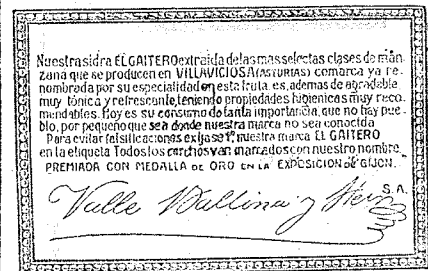 Nuestra sidra EL GAITERO extraida de las mas selectas clases de man-
zana que se producen en VILLAVICIOSA (ASTURIAS) comarca ya re-
nombrada por su especialidad en esta fruta, es, ademas de agradable,
muy tónica y refrescante, teniendo propiedades higienicas muy reco-
mendables. Hoy es su consumo de tanta importancia, que no hay pue-
blo, por pequeño que sea donde nuestra marca no sea conocida
Para evitar falsificaciones exijase nuestra marca EL GAITERO
en la etiqueta Todos los corchos van marcados con nuestro nombre
PREMIADA CON MEDALLA DE ORO EN LA EXPOSICION DE GIJON.
Valle Ballina y Fern S.A.